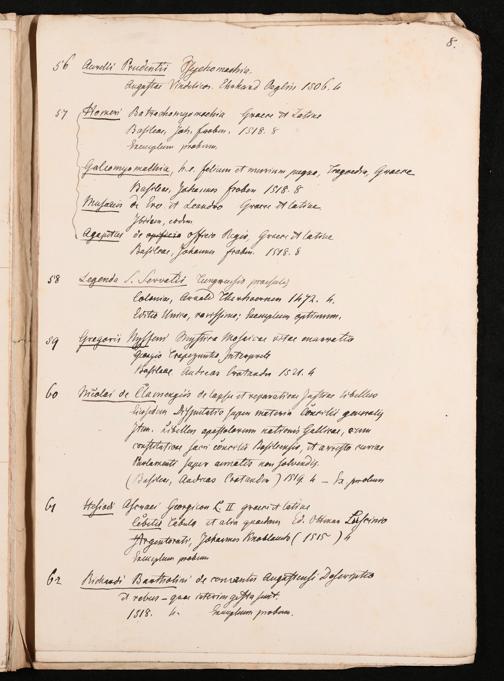 8.
56 Aurelii Prudentii Psychomachia.
Augustae Vindelicor. Ehrhard Oeglin 1506. 4
57 Homeri Batrachomyomachia Graece et Latine
Basileae, Joh. froben. 1518. 8
Exemplum probum.
Galeomyomachia, h.e. felium et murium pugna, Tragoedia, Graece
Basileae, Johannes froben 1518. 8
Musaeus de Ero et Leandro Graece et latine
Ibidem, eodem
Agapetus de officio Regis, Graece et latine
Basileae, Johannes froben. 1518. 8
58 Legenda S. Servatii Tungrensis praesulis
Coloniae, Arnold Therhoernen 1472. 4.
Editio Unica, rarissima; Exemplum optimum.
59 Gregorii Nysseni Mystica Mosaicae vitae enarratio
Georgio Trapezuntio Interprete
Basileae Andreas Cratander 1521. 4
60 Nicolai de Clamengiis de lapsu et reparatione Justitiae libellus
Disputatio super materia Concilii generalis
Item. Libellus apostolorum nationis Gallicae, cum
constitutione sacri concilii Basiliensis, et arresto curiae
Parlamenti super annatis non solvendis.
(Basileae, Andreas Cratander) 1519. 4 – Ex. probum
61 Hesiodi Ascraei Georgicon L. II graece et latine
Cebetis Tabula et alia quaedam Ed. Othmar Luscinio
Argentorati, Johannes Knoblauch (1515) 4
Exemplum probum
62 Richardi Bartholini de conventu Augustensi Descriptio
et rebus – quae interim gesta sunt.
1518. 4. Exemplum probum.